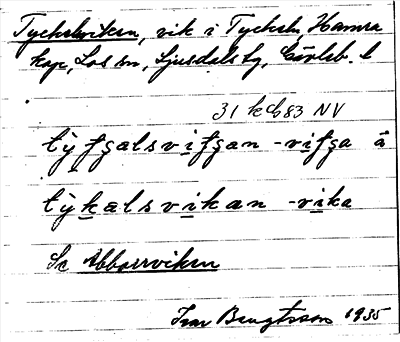 Tyckelsviken, vik i Tyckeln, Hamra
kap, Los sn, Ljusdals tg, Gävleb. l
31 kc683 NV
tỳfgalsvifgan -vifga â
tỳkælsvikæn -vika
Se Abborrviken
Ivar Bengtsson 1935